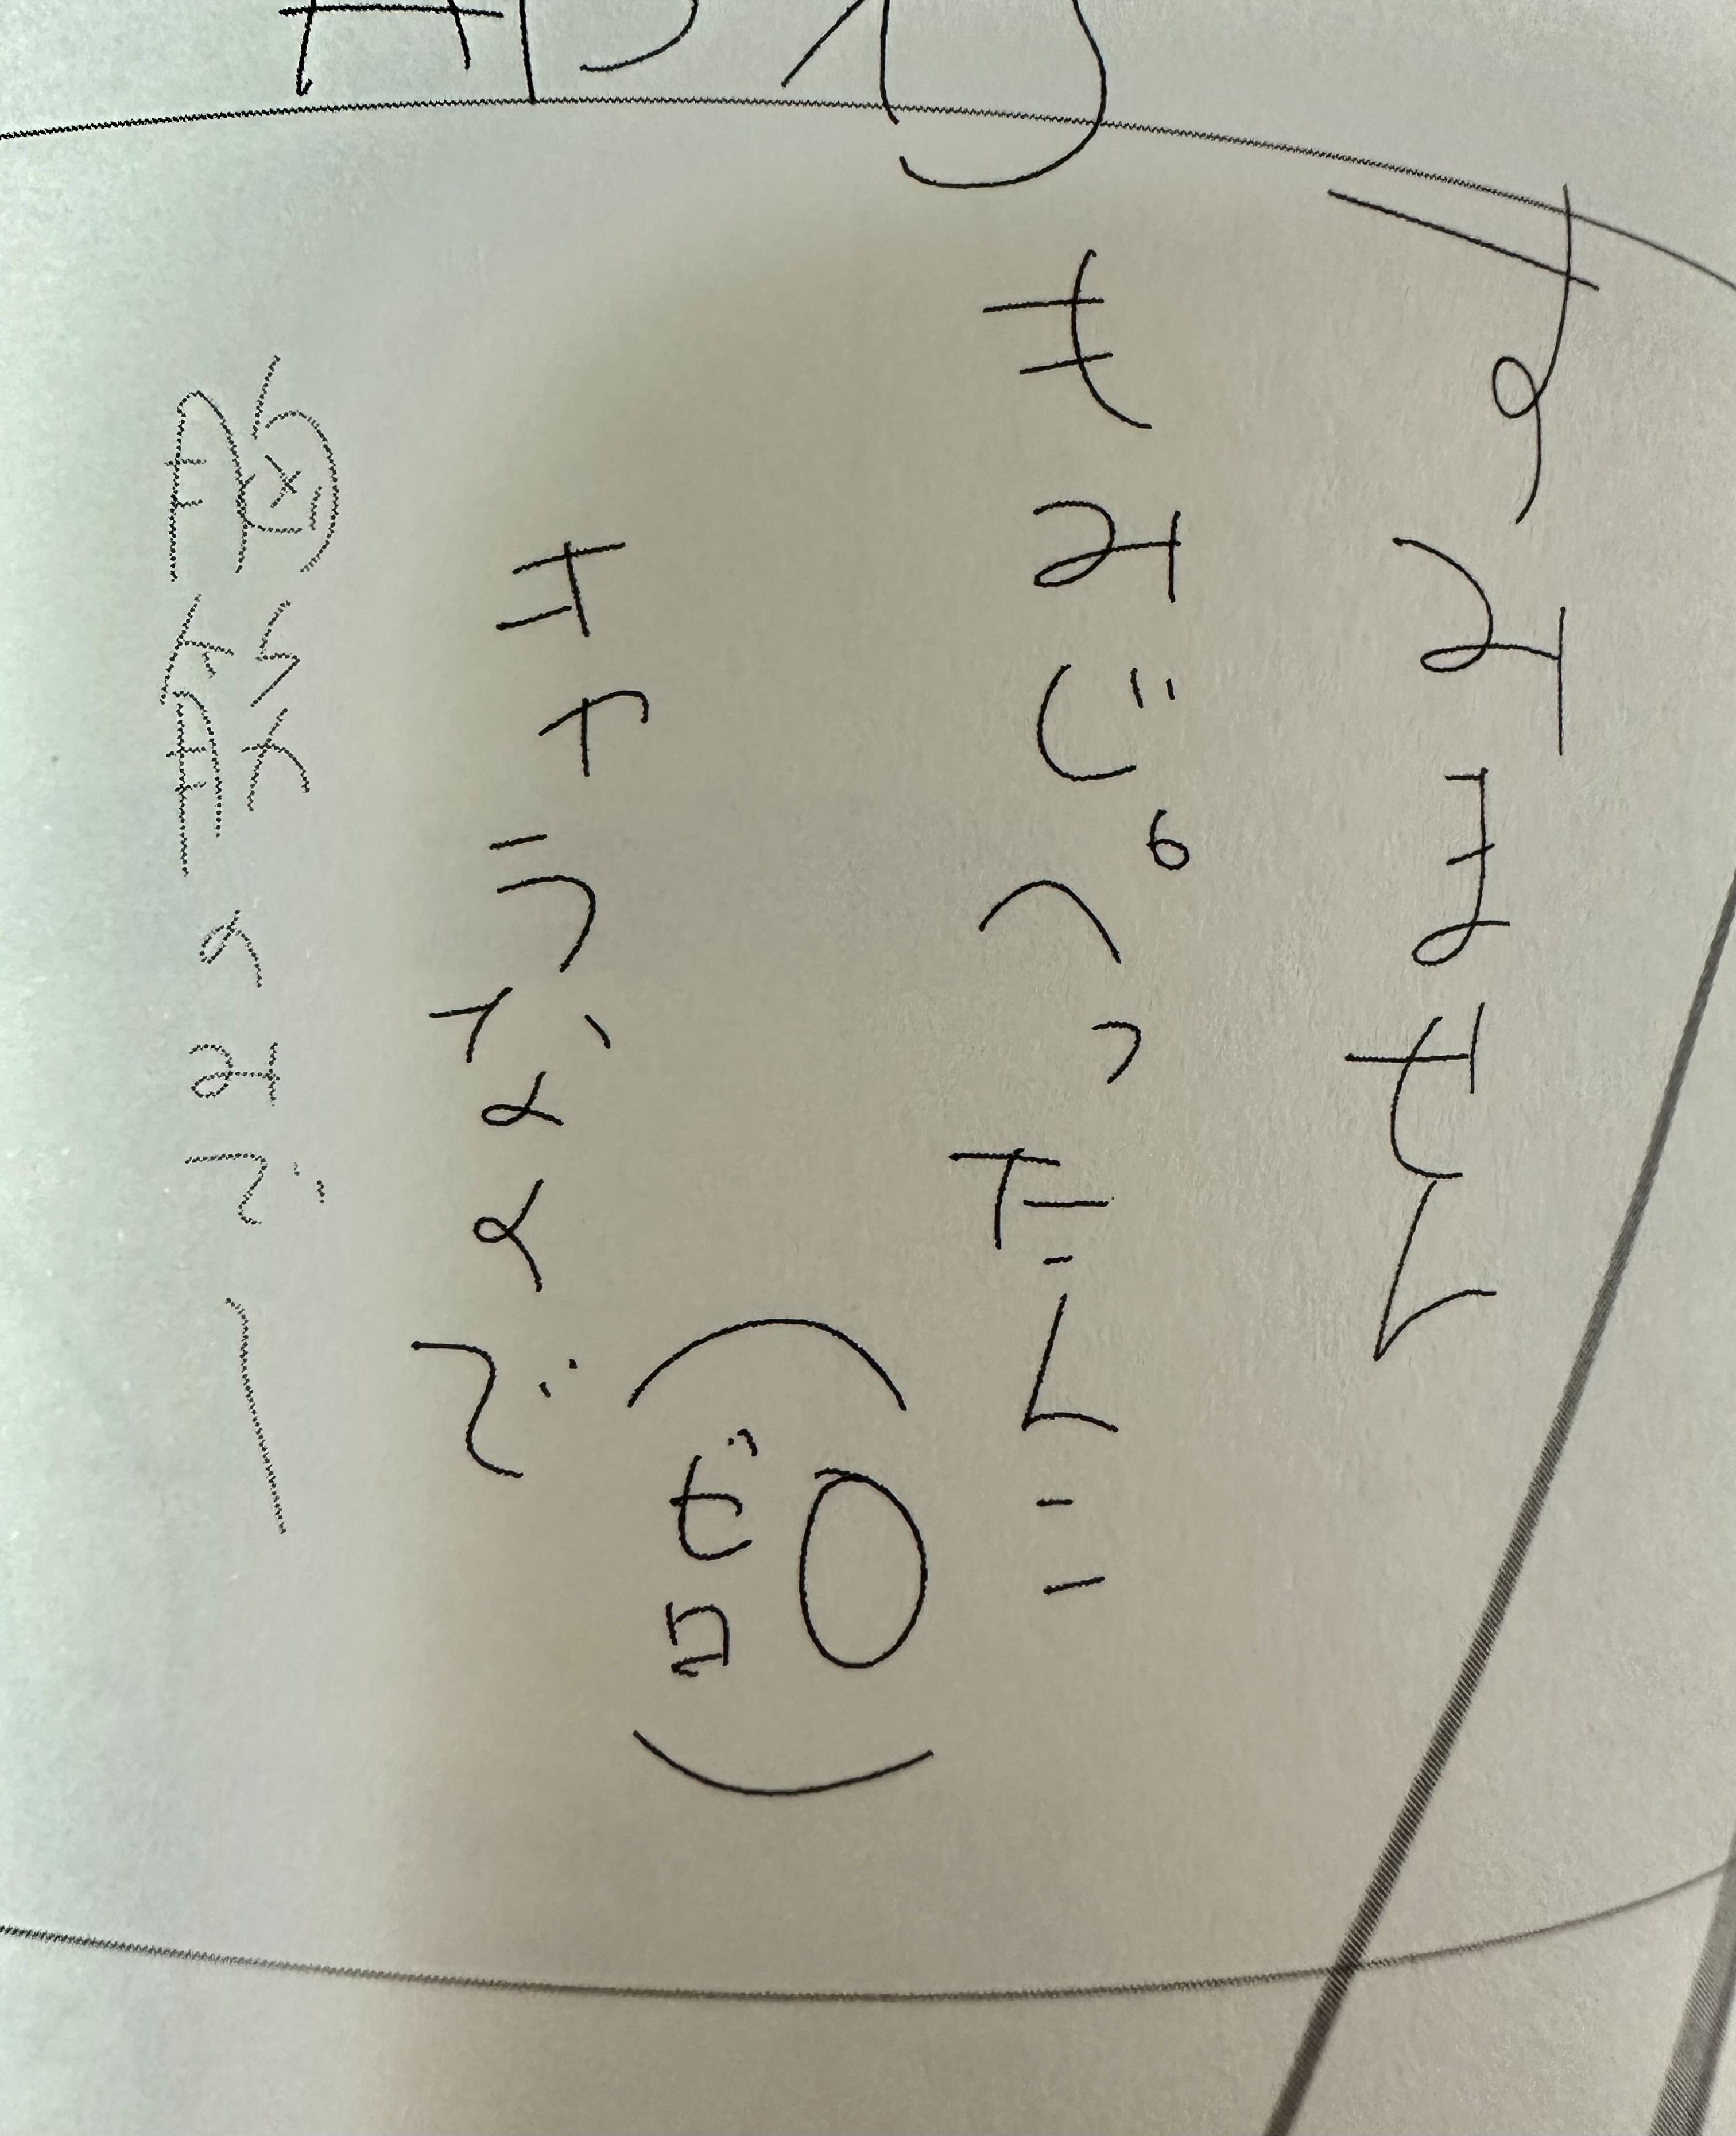 すみません
もみじぺったんこ
(0ゼロ)
キャラなので
胸筋のみでー